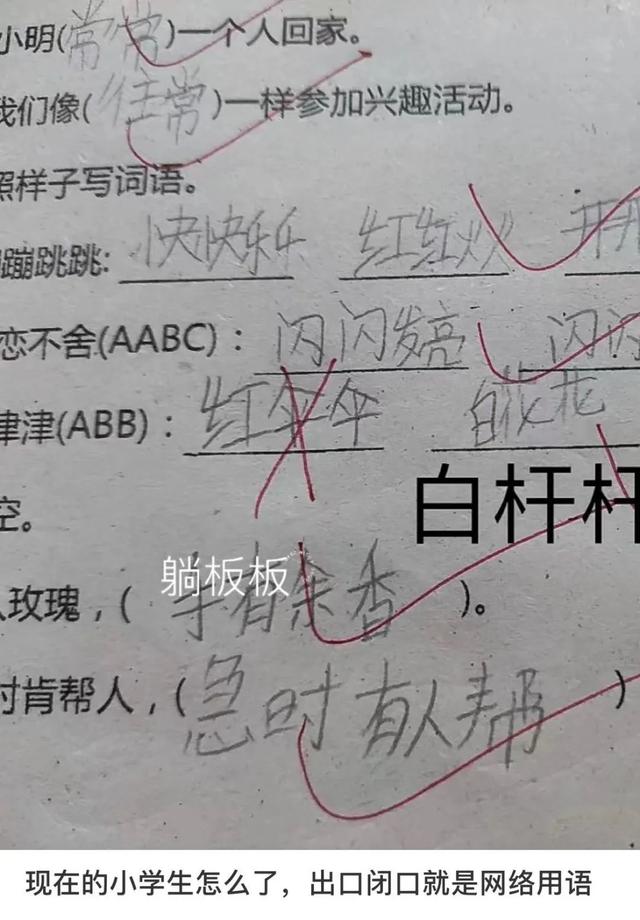 小明(常常)一个人回家。
我们像(往常)一样参加兴趣活动。
照样子写词语。
蹦跳跳: 快快乐乐 红红火火 开开
恋不舍(AABC)： 闪闪发亮 闪闪
津津(ABB)： 红伞伞 白花花
白杆杆
空。
躺板板
人玫瑰，( 手有余香 )。
时肯帮人，(急时有人帮 )
现在的小学生怎么了，出口闭口就是网络用语